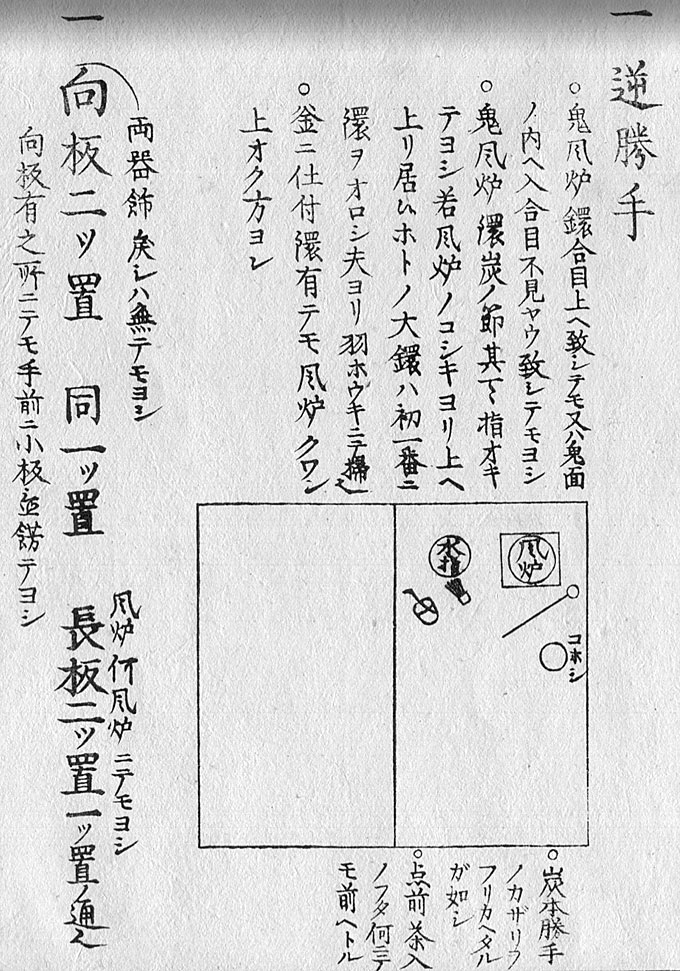 一 逆勝手
○鬼風炉鐶合目上ヘ致シテモ又ハ鬼面
ノ内ヘ入合目不見ヤウ致シテモヨシ
○鬼風炉鐶炭ノ節其下ヘ指オキ
テヨシ若風炉ノコシキヨリ上ヘ
上リ居ルホトノ大鐶ハ初一番ニ
環ヲオロシ夫ヨリ羽ホウキニテ掃之
○釜ニ仕付鐶有テモ風炉クワン
上オク方ヨシ
風炉
水指
コホシ
○炭本勝手
ノカザリヲ
フリカヘタル
が如シ
○点前茶入
ノフタ何ニテ
モ前ヘトル
両器飾 戻シハ無テモヨシ
風炉何風炉ニテモヨシ
一 向板二ッ置 同一ッ置 長板二ッ置一ッ置ノ通之
向板有之所ニテモ手前ニ小板 餝テヨシ